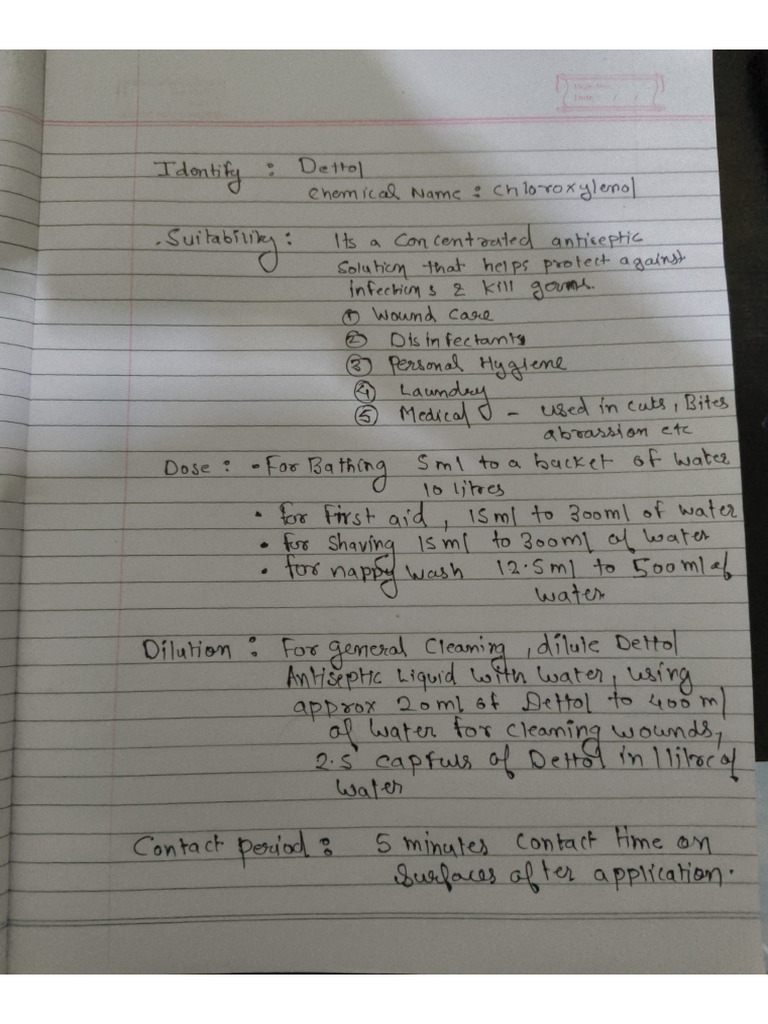 Identify : Dettol
Chemical Name : Chloroxylenol
.Suitability : Its a concentrated antiseptic
solution that helps protect against
infections & kill germs.
① Wound care
② Disinfectants
③ Personal Hygiene
④ Laundry
⑤ Medical - used in cuts, Bites
abrassion etc
Dose : • For Bathing 5ml to a backet of water
10 litres
• for first aid, 15ml to 300ml of water
• for shaving 15ml to 300ml of water
• for nappy wash 12.5ml to 500ml of
water
Dilution : For general cleaning, dilule Dettol
Antiseptic Liquid with water, using
approx 20ml of Dettol to 400ml
of water for cleaning wounds,
2.5 capfuls of Dettol in 1litre of
water
Contact period : 5 minutes contact time on
surfaces after application.